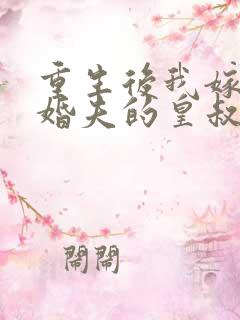 重生後我嫁
婚夫的皇叔
鬧鬧